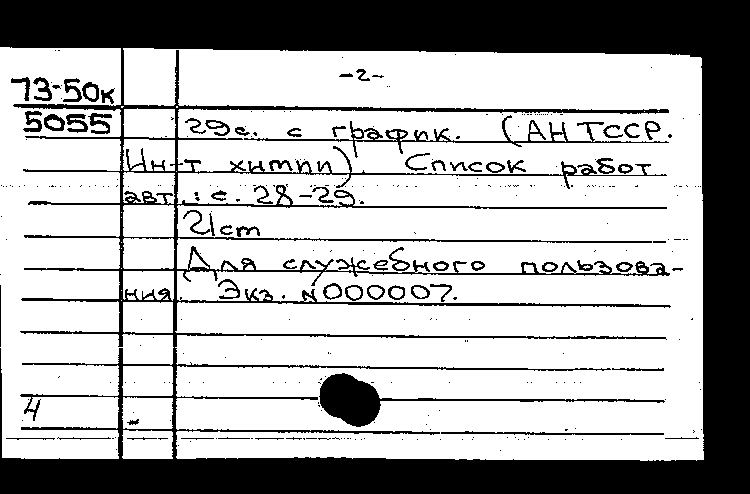 -2-
73-50к
5055
29с. с график. (АН ТССР.
Ин-т химии). Список работ
авт.: с. 28-29.
21cm
Для служебного пользова-
ния. Экз. N000007.
4